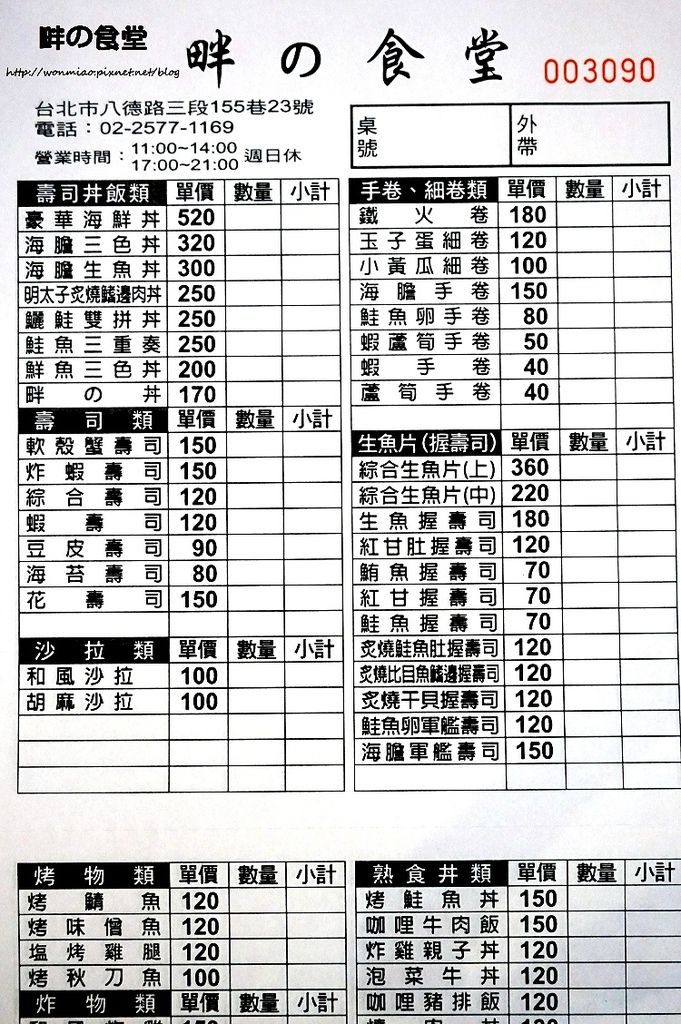 畔の食堂
http://wonmiao.pixnet.net/blog
畔の食堂
003090
台北市八德路三段155巷23號
電話：02-2577-1169
營業時間：11:00~14:00
17:00~21:00 週日休
桌號
外帶
壽司丼飯類 單價 數量 小計
豪華海鮮丼 520
海膽三色丼 320
海膽生魚丼 300
明太子炙燒鰭邊肉丼 250
鱺鮭雙拼丼 250
鮭魚三重奏 250
鮮魚三色丼 200
畔の丼 170
壽司類 單價 數量 小計
軟殼蟹壽司 150
炸蝦壽司 150
綜合壽司 120
蝦壽司 120
豆皮壽司 90
海苔壽司 80
花壽司 150
沙拉類 單價 數量 小計
和風沙拉 100
胡麻沙拉 100
手卷、細卷類 單價 數量 小計
鐵火卷 180
玉子蛋細卷 120
小黃瓜細卷 100
海膽手卷 150
鮭魚卵手卷 80
蝦蘆筍手卷 50
蝦手卷 40
蘆筍手卷 40
生魚片(握壽司) 單價 數量 小計
綜合生魚片(上) 360
綜合生魚片(中) 220
生魚握壽司 180
紅甘肚握壽司 120
鮪魚握壽司 70
紅甘握壽司 70
鮭魚握壽司 70
炙燒鮭魚肚握壽司 120
炙燒比目魚鰭邊握壽司 120
炙燒干貝握壽司 120
鮭魚卵軍艦壽司 120
海膽軍艦壽司 150
烤物類 單價 數量 小計
烤鯖魚 120
烤味僧魚 120
塩烤雞腿 120
烤秋刀魚 100
炸物類 單價 數量 小計
熟食丼類 單價 數量 小計
烤鮭魚丼 150
咖哩牛肉飯 150
炸雞親子丼 120
泡菜牛丼 120
咖哩豬排飯 120